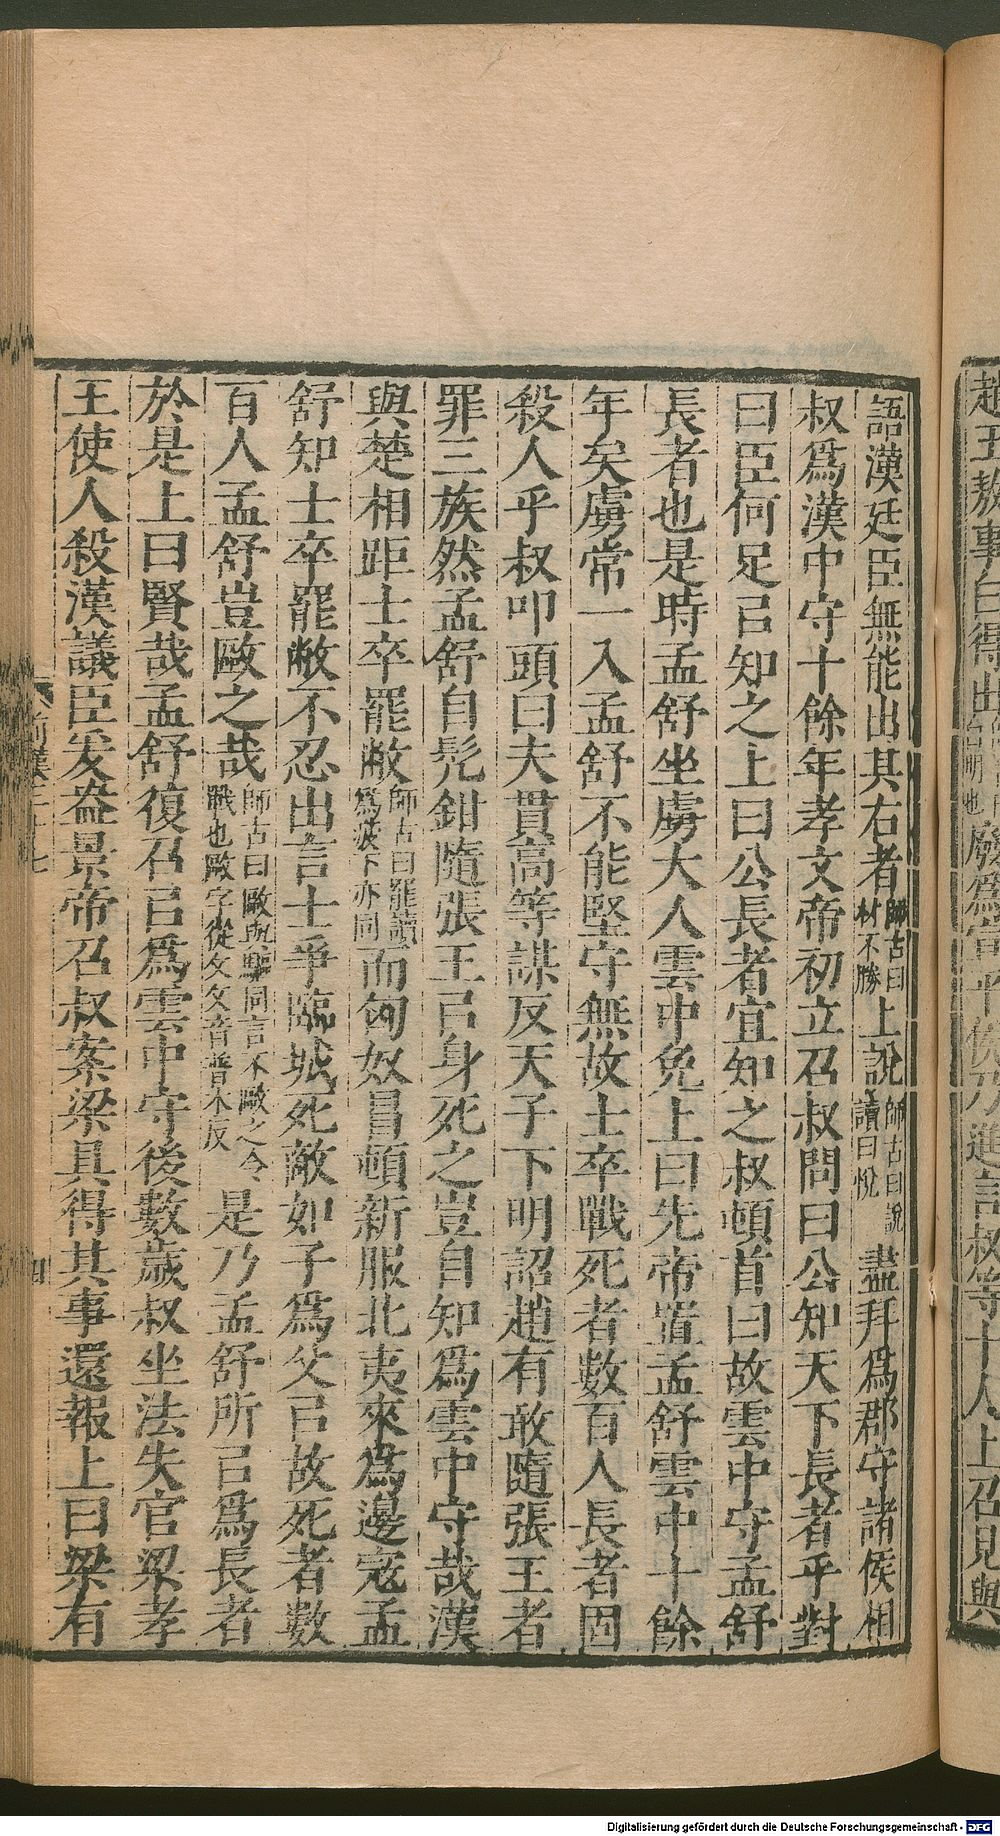 趙王敖事白得出
廢爲宣平侯乃進言叔等十人上召見與
語漢廷臣無能出其右者師古曰材不勝上說師古曰說讀曰悅盡拜爲郡守諸侯相
叔爲漢中守十餘年孝文帝初立召叔問曰公知天下長者乎對
曰臣何足㠯知之上曰公長者宜知之叔頓首曰故雲中守孟舒
長者也是時孟舒坐虜大人雲中免上曰先帝置孟舒雲中十餘
年矣虜常一入孟舒不能堅守無故士卒戰死者數百人長者固
殺人乎叔叩頭曰夫貫高等謀反天子下明詔趙有敢隨張王者
罪三族然孟舒自髡鉗隨張王㠯身死之豈自知爲雲中守哉漢
與楚相距士卒罷敝師古曰罷讀爲疲下亦同而匈奴冒頓新服北夷來爲邊寇孟
舒知士卒罷敝不忍出言士爭臨城死敵如子爲父㠯故死者數
百人孟舒豈敺之哉師古曰敺與驅同言不敺之令戰也敺字從攴攴音普木反是乃孟舒所㠯爲長者
於是上曰賢哉孟舒復召㠯爲雲中守後數歲叔坐法失官梁孝
王使人殺漢議臣爰盎景帝召叔案梁具得其事還報上曰梁有
前漢三十七
四
Digitalisierung gefördert durch die Deutsche Forschungsgemeinschaft - DFG